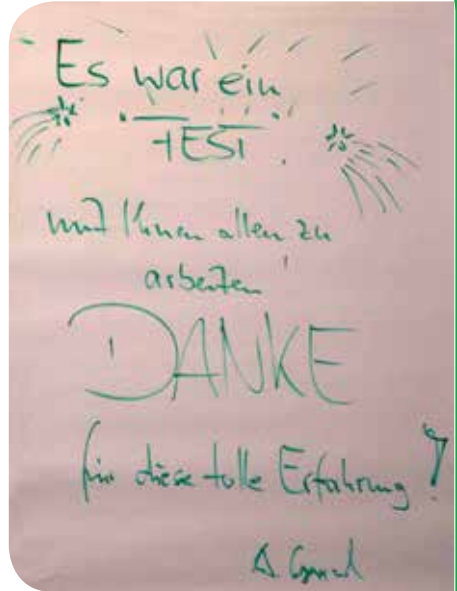 Es war ein
FEST
mit Ihnen allen zu
arbeiten!
DANKE
für diese tolle Erfahrung!